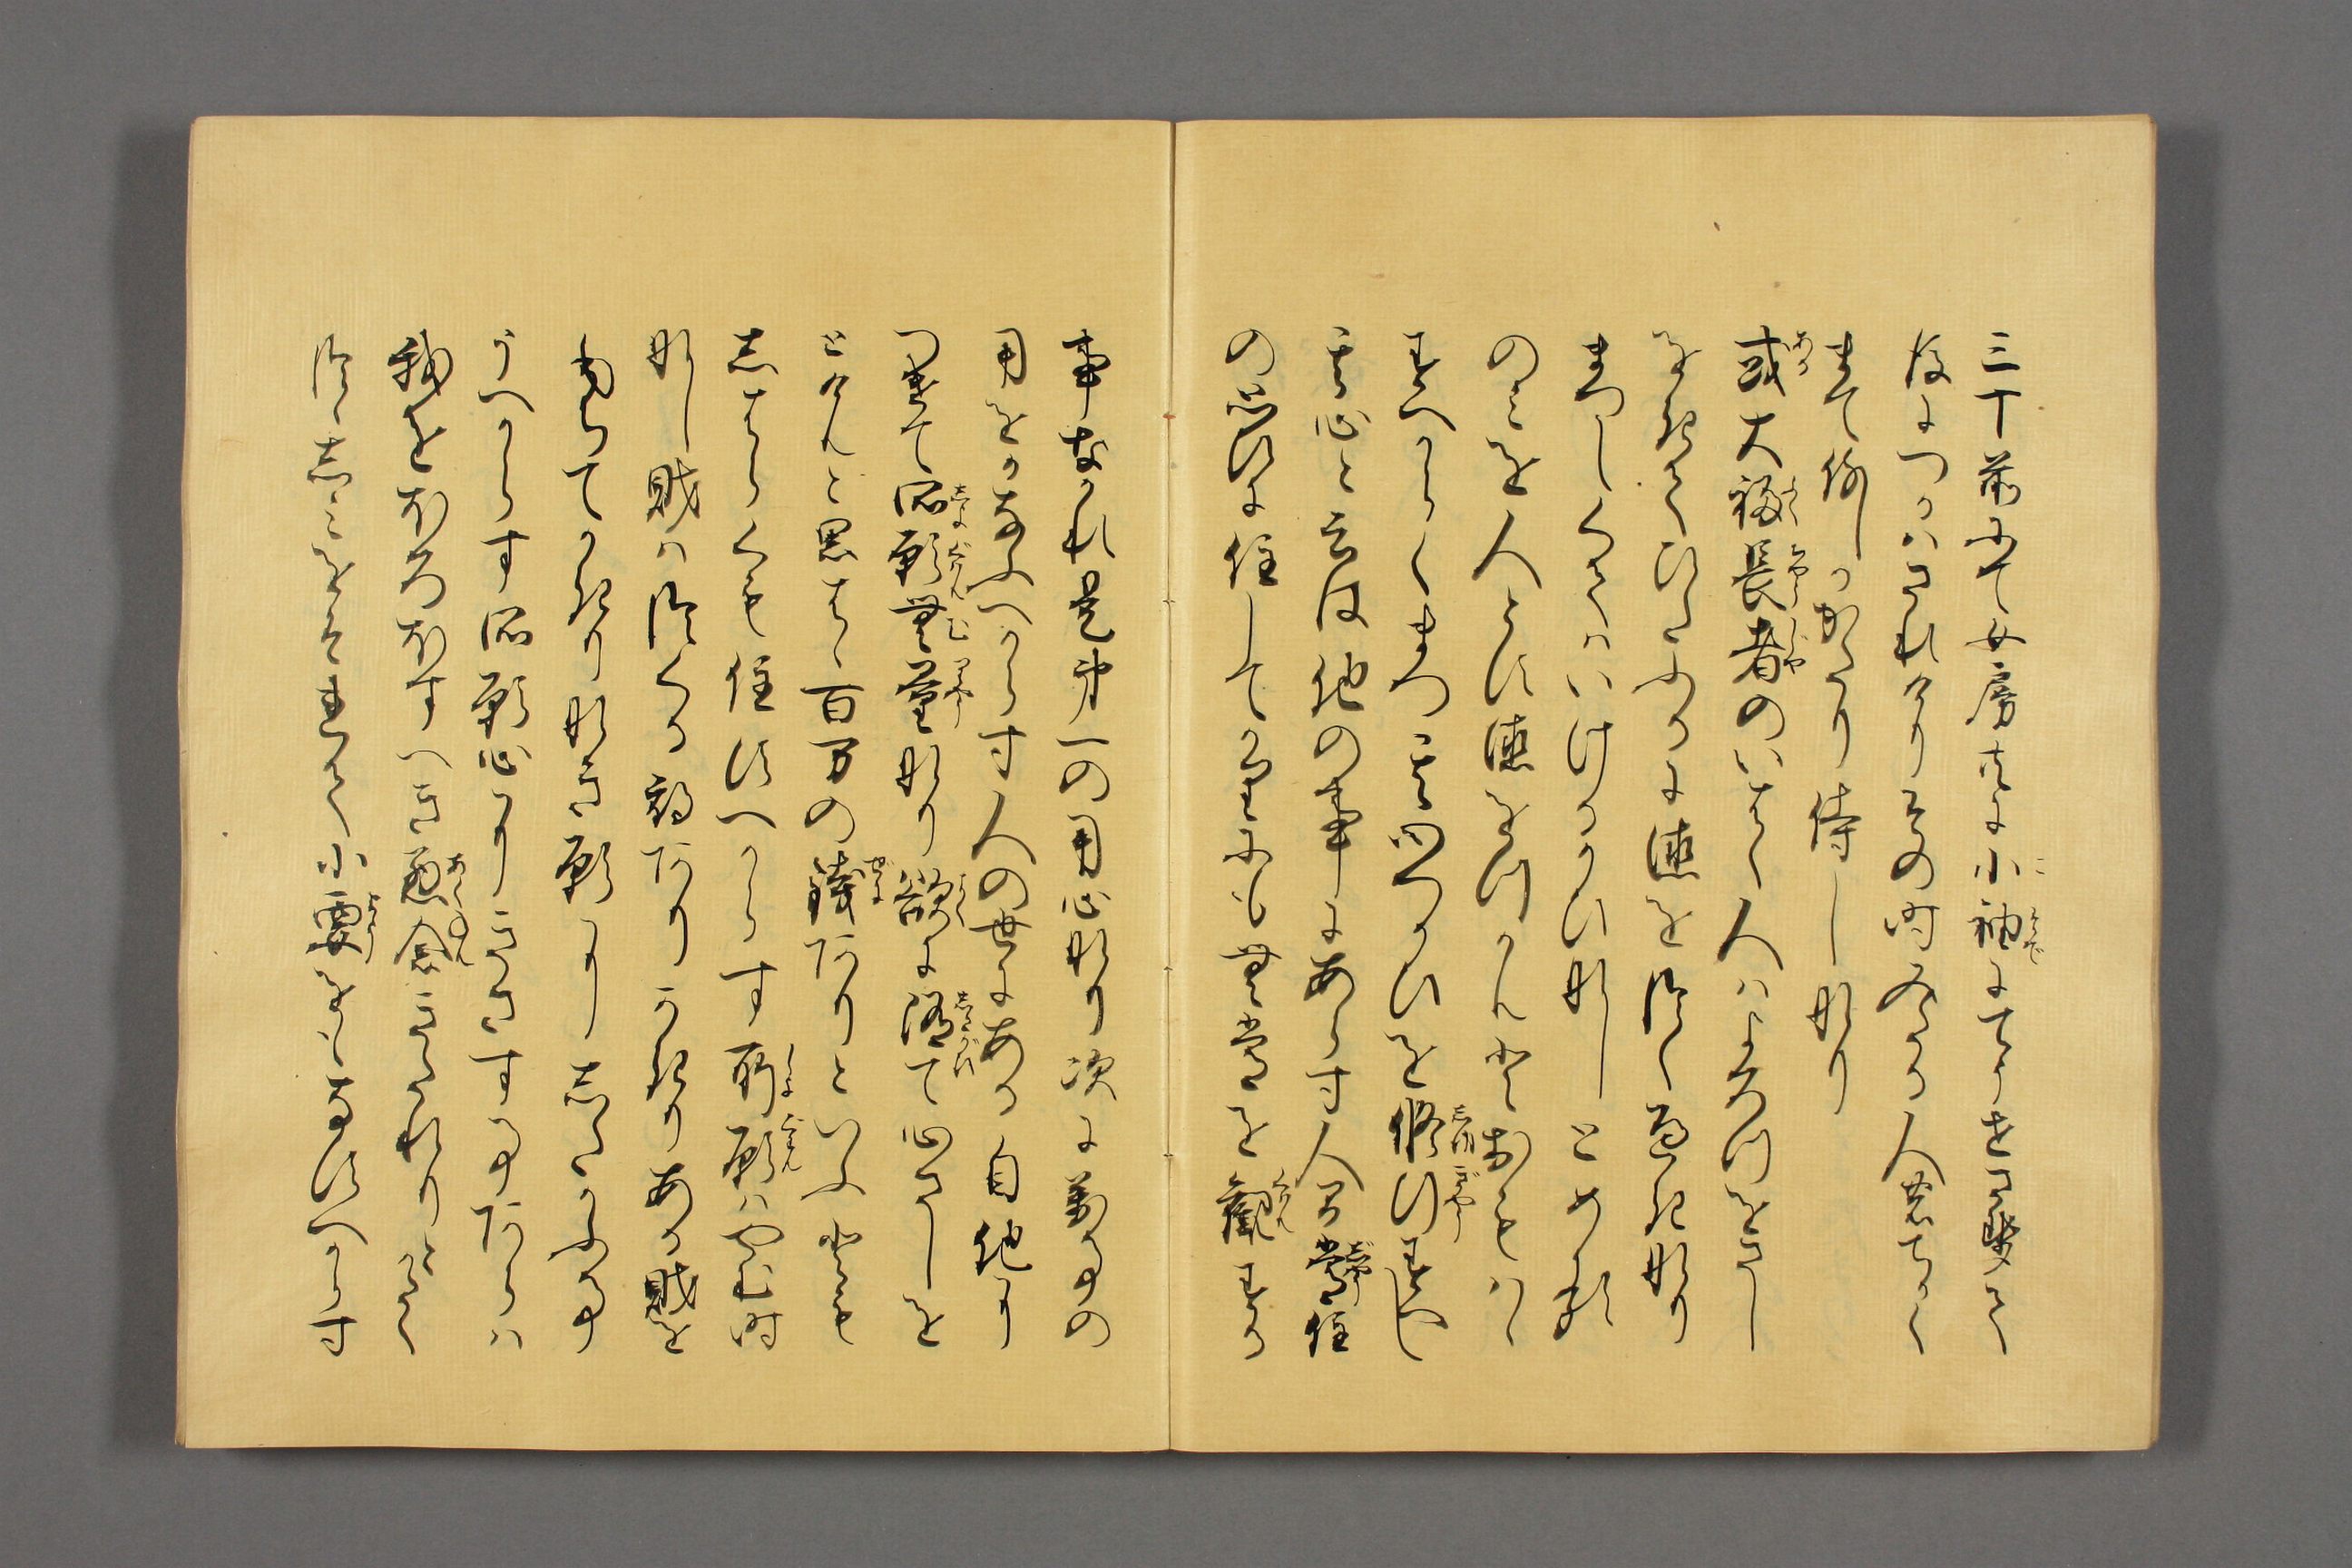 三十前にて女房共に小袖にてうせさせて
後につかはされけりその時みたる人のちかく
まて侍しかかたり侍しなり
或大福長者のいはく人はよろつをさし
をきてひたふるに徳をつくへきなり
まつしくてはいけるかひなしとめる
のみを人とす徳をつかんとおもはゝ
すへからくまつ其心つかひを修行すへし
其心と云は他の事にあらす人間常住
の思ひに住してかりにも無常を観する
事なかれ是第一の用心なり次に万事の
用をかなふへからす人の世にある自他に
つけて所願無量なり欲に随て心さしを
とけんと思はゝ百万の銭ありといふとも
しはらくも住すへからす所願はやむ時
なし財はつくる期ありかきりある財を
もちてかきりなき願にしたかふ事
うへからす所願心にきさす事あらは
我をほろほすへき悪念きたれりとかたく
つゝしみをそれて小要をもなすへからす